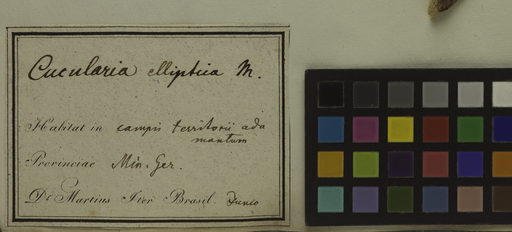 Cucularia elliptica M.
Habitat in campis territorii ada
mantum
Provinciae Min. Ger.
Dr Martius Iter Brasil. Junio